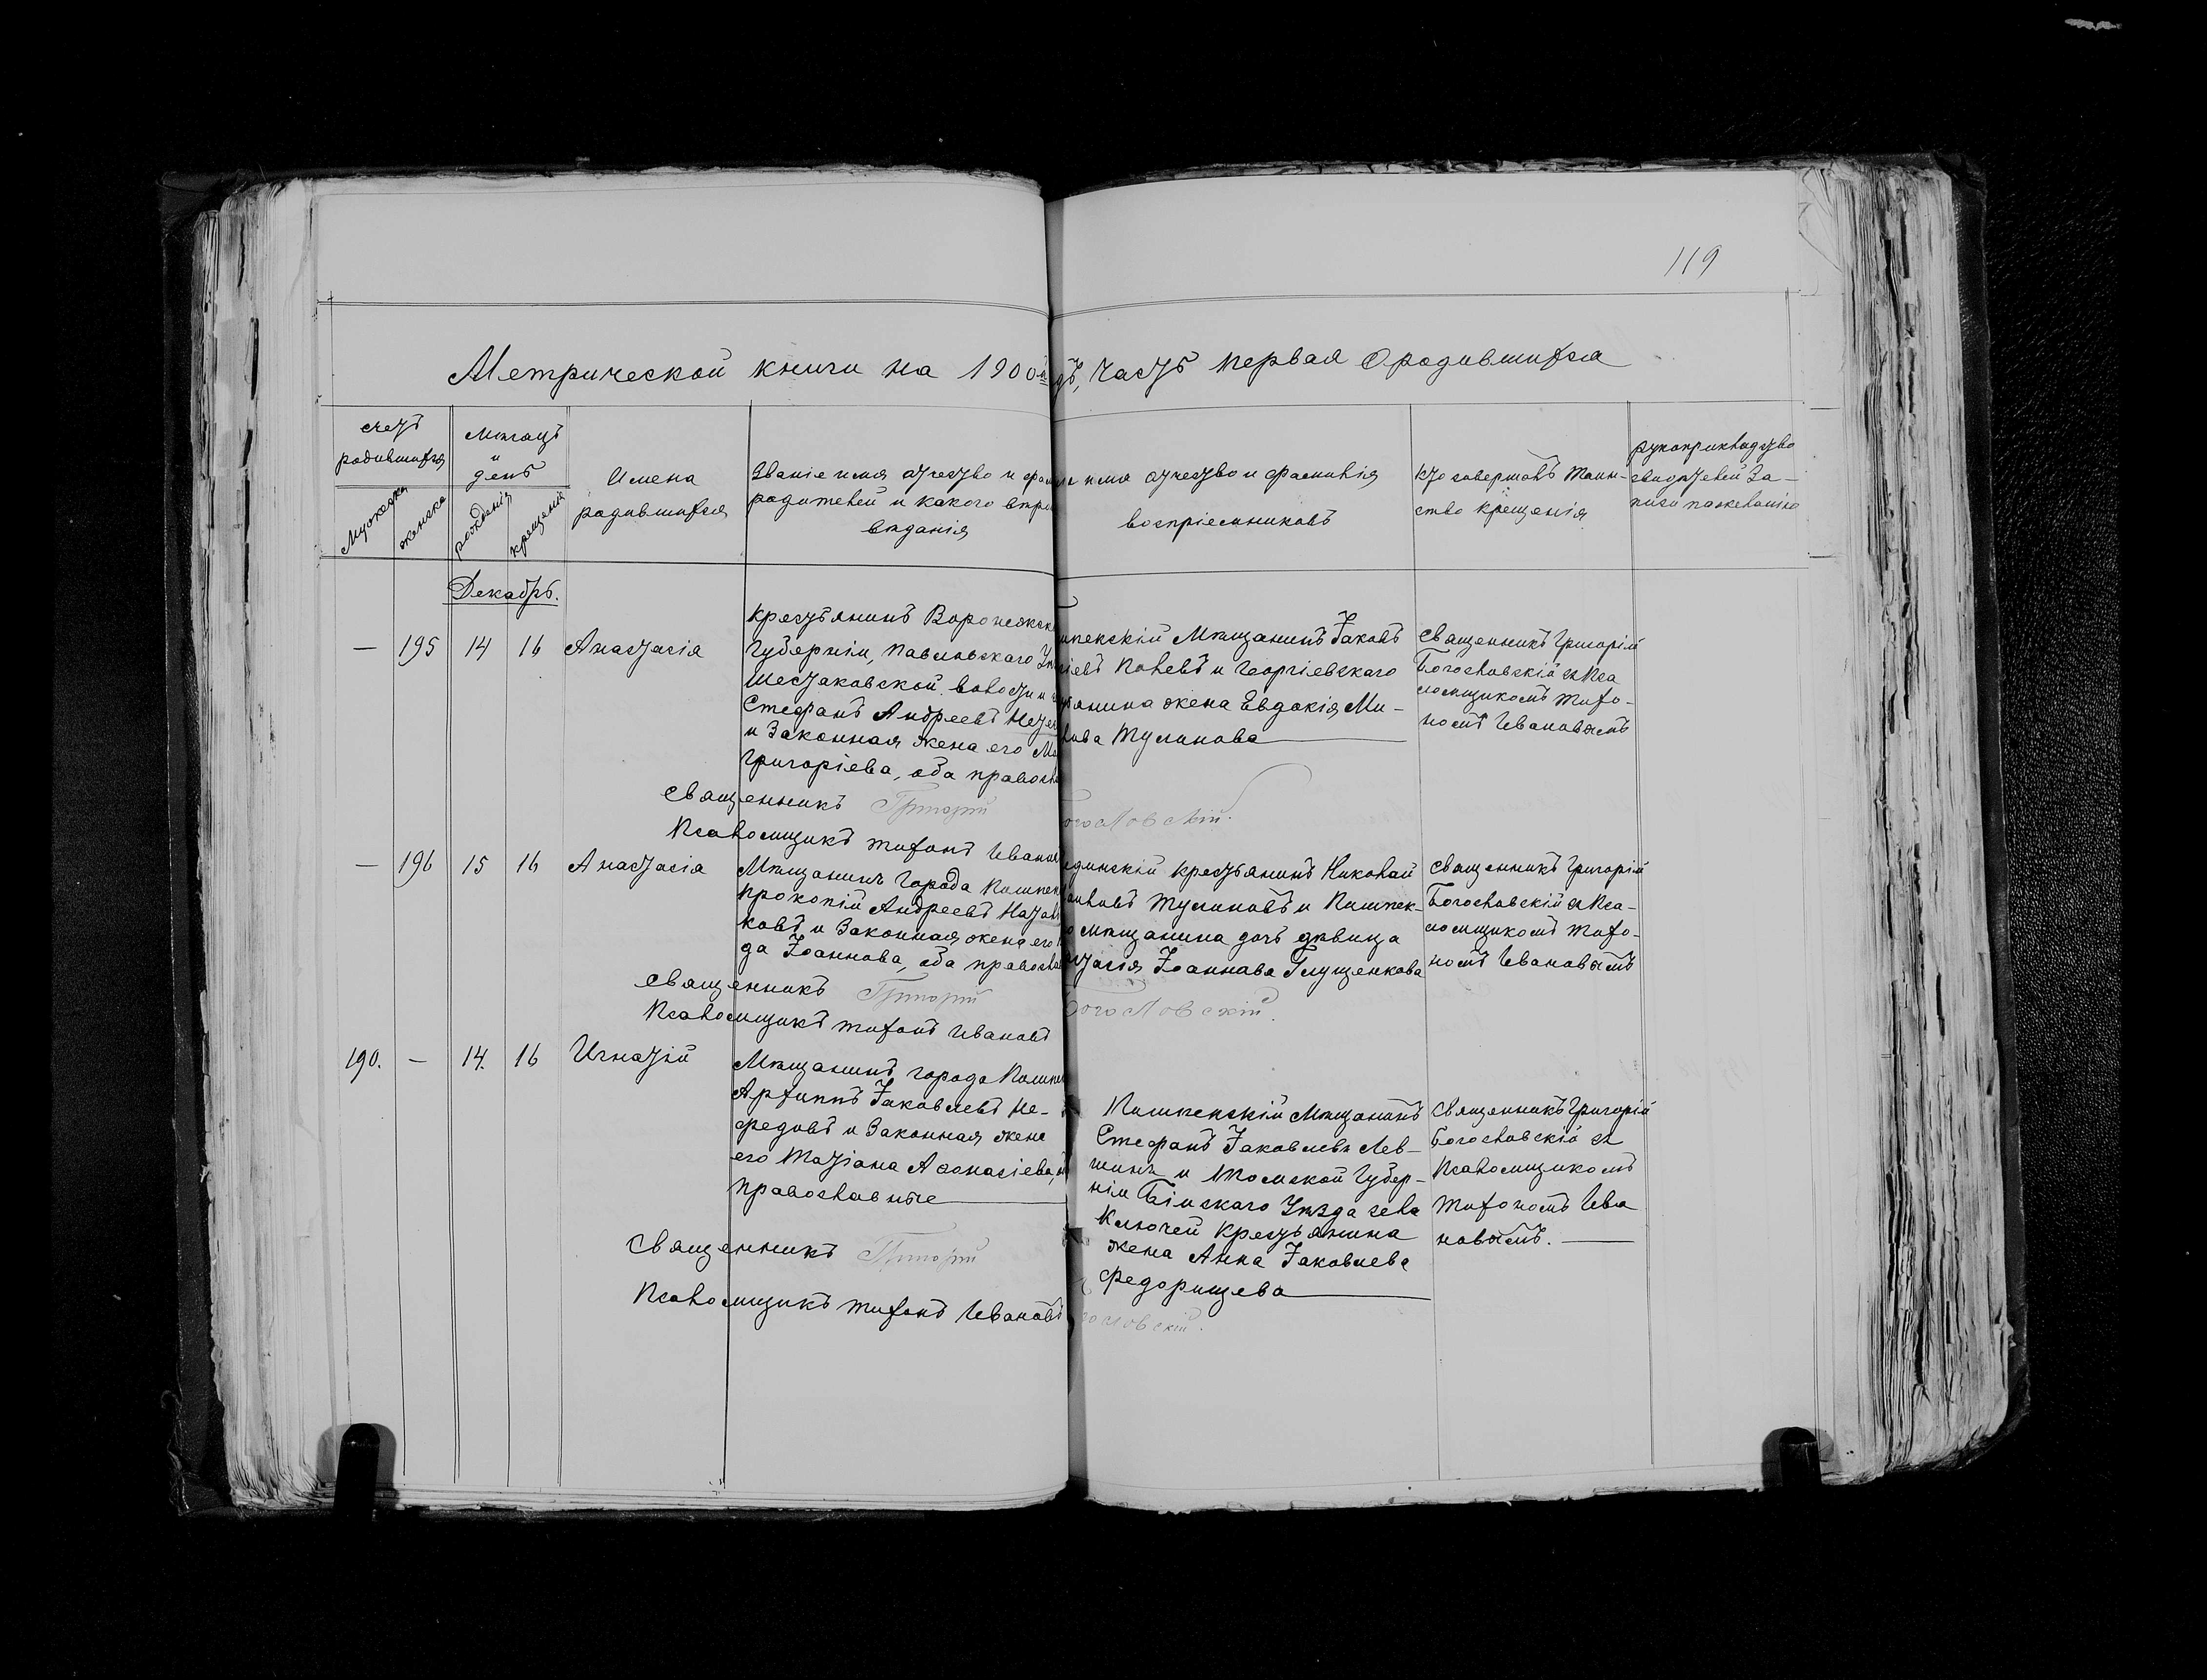 119
Метрической книги на 1900й
дъ, часть первая О родившихся
счетъ
родившихся
Мужска
женска
Мѣсяцъ
и
день
рожденія
крещенія
Имена
родившихся
Званіе имя отчество и фам
родителей и какого вѣро
вѣданія
имя отчество и фамилія
воспріемниковъ
Кто совершалъ Таин-
ство крещенія
рукоприкладство
свидѣтелей За-
писи по желанію
Декабрь.
— 195 14 16 Анастасія
Крестьянинъ Воронежск
Губерніи, Павловскаго Уѣ
Шестаковской волости
Стефанъ Андреевъ
и Законная жена его Ма
Григоріева, оба правосла
шпекскій Мѣщанинъ Іаковъ
іевъ Полевъ и Георгіевскаго
янина жена Евдокія Ми-
лова Тулинова
Священникъ Григорій
Богословскій съ Пса
ломщикомъ Тихо-
номъ Ивановымъ
Священникъ Григорій
Богословскій.
Псаломщикъ Тихонъ Иванов
— 196 15 16 Анастасія
Мѣщанинъ города Пишпек
Прокопій Андреевъ
ковъ и Законная жена его
да Іоаннова, оба правосла
динскій крестьянинъ Николай
Тулиновъ и Пишпек-
о мѣщанина дочь дѣвица
тасія Іоаннова Глущенкова
Священникъ Григорій
Богословскій съ Пса-
ломщикомъ Тихо-
номъ Ивановымъ
Священникъ Григорій
Богословскій.
Псаломщикъ Тихонъ Ивановъ
190. — 14. 16 Игнатій
Мѣщанинъ города Пишпек
Архиппъ Іаковлевъ Не-
федовъ и Законная жена
его Татіана Афонасіева,
православные
Пишпекскій Мѣщанинъ
Стефанъ Іаковлевъ Лев-
шинъ и Томской Губер-
ніи Бійскаго Уѣзда села
Ключей Крестьянина
жена Анна Іаковлева
Федорищева
Священникъ Григорій
Богословскій съ
Псаломщикомъ
Тихономъ Ива
новымъ.
Священникъ Григорій
гословскій.
Псаломщикъ Тихонъ Ивановъ